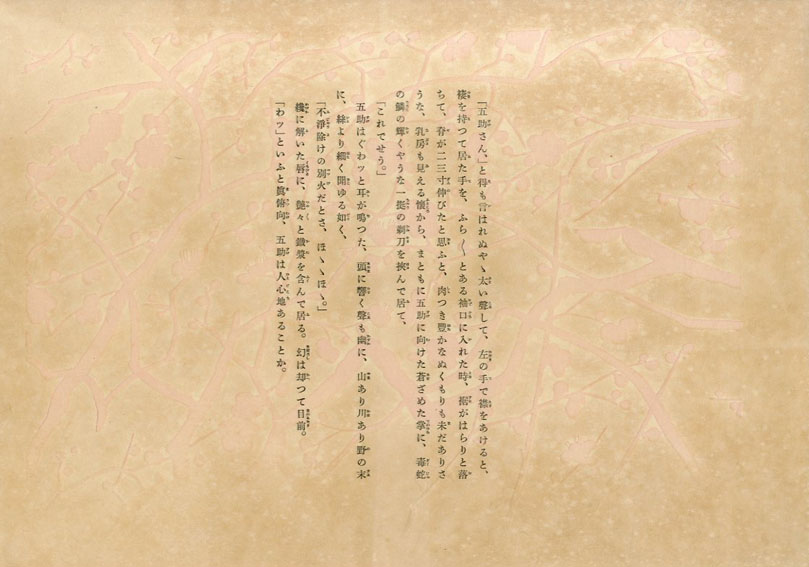 「五助さん、」と得も言はれぬやゝ太い聲して、左の手で襟をあけると、
褄を持つて居た手を、ふら〳〵とある袖口に入れた時、裾がはらりと落
ちて、脊が二三寸伸びたと思ふと、肉つき豊かなぬくもりも未だありさ
うな、乳房も見える懷から、まともに五助に向けた蒼ざめた掌に、毒蛇
の鱗の輝くやうな一挺の剃刀を挾んで居て、
「これでせう。」
五助はぐわッと耳が鳴つた、頭に響く聲も幽に、山あり川あり野の末
に、絲より細く聞ゆる如く、
「不淨除けの別火だとさ、ほゝゝほゝ。」
纔に解いた唇に、艶々と鐵漿を含んで居る。幻は却つて目前。
「わッ」といふと眞俯向、五助は人心地あることか。